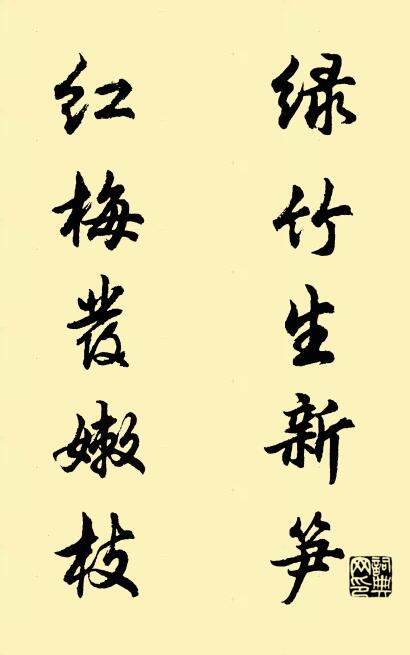 绿竹生新笋
红梅发嫩枝
詞典网印